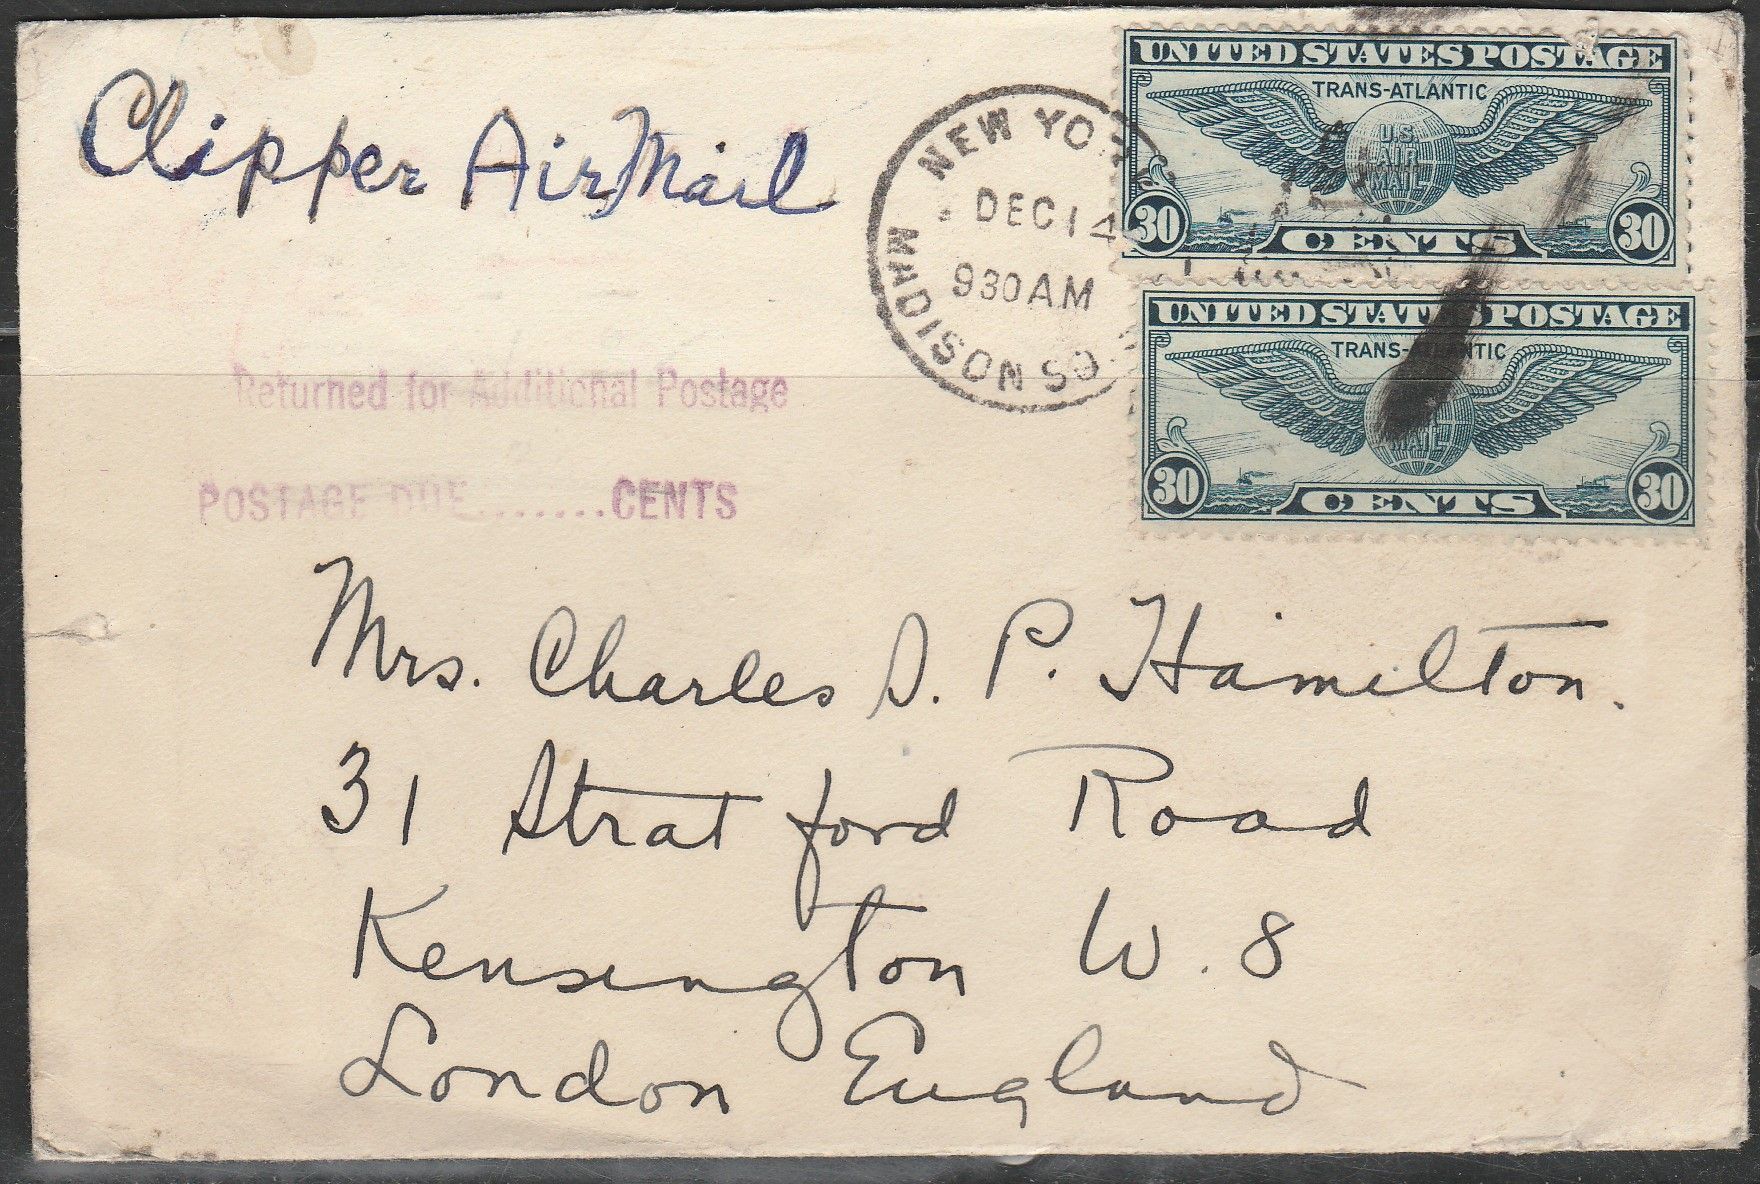 Clipper Air Mail
NEW YORK
DEC 14
930 AM
MADISON SQ.
UNITED STATES POSTAGE
TRANS-ATLANTIC
U.S.
AIR
MAIL
30 CENTS 30
UNITED STATES POSTAGE
TRANS-ATLANTIC
30 CENTS 30
Returned for Additional Postage
POSTAGE DUE.......CENTS
Mrs. Charles S. P. Hamilton.
31 Stratford Road
Kensington W. 8
London England